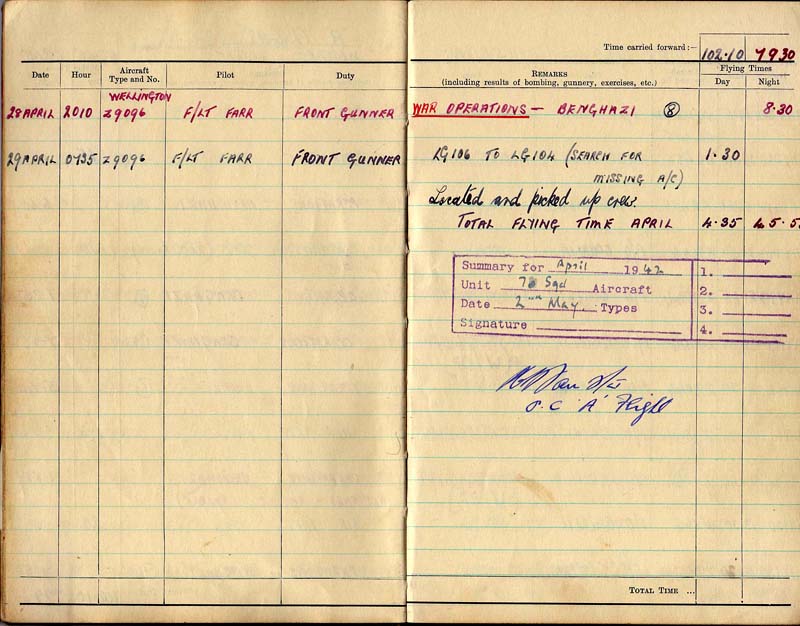 Time carried forward :— 102.10 79.30
Date Hour Aircraft Type and No. Pilot Duty REMARKS (including results of bombing, gunnery, exercises, etc.) Flying Times Day Night
WELLINGTON
28 APRIL 2010 Z9096 F/LT FARR FRONT GUNNER WAR OPERATIONS — BENGHAZI (8) 8.30
29 APRIL 0735 Z9096 F/LT FARR FRONT GUNNER LG106 TO LG104 (SEARCH FOR 1.30
MISSING A/C)
Located and picked up crew.
TOTAL FLYING TIME APRIL 4.35 45.5
Summary for April 1942 1.
Unit Sqd Aircraft 2.
Date 2nd May. Types 3.
Signature 4.
O.C 'A' Flight
TOTAL TIME ...